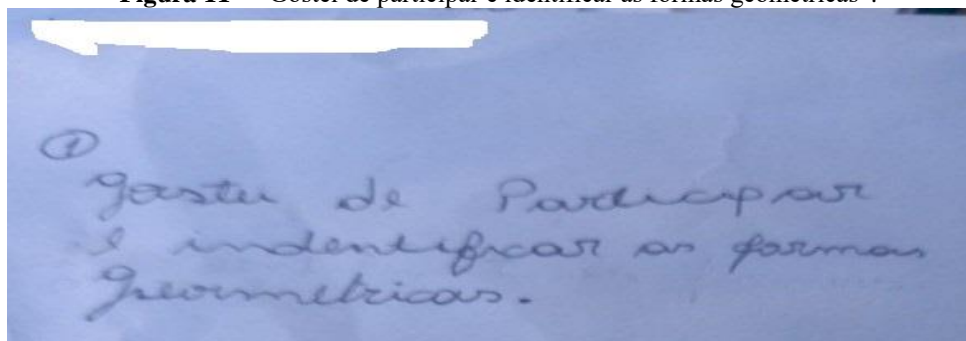 Figura 11 – "Gostei de participar e identificar as formas geométricas".
①
gostei de Participar
e indentificar as formas
geormetricas.